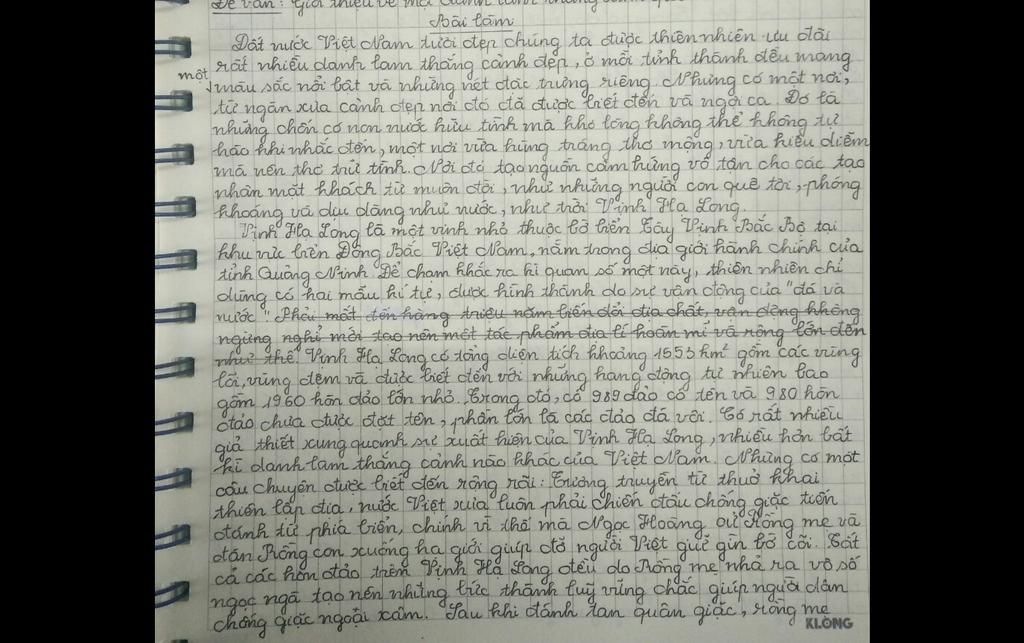 Đề văn: Giới thiệu về một danh lam thắng cảnh
Bài làm
Đất nước Việt Nam tươi đẹp chúng ta được thiên nhiên ưu đãi
rất nhiều danh lam thắng cảnh đẹp, ở mỗi tỉnh thành đều mang
một màu sắc nổi bật và những nét đặc trưng riêng. Nhưng có một nơi,
từ ngàn xưa cảnh đẹp nơi đó đã được biết đến và ngợi ca. Đó là
những chốn có non nước hữu tình mà khó lòng không thể không tự
hào khi nhắc đến, một nơi vừa hùng tráng thơ mộng, vừa kiều diễm
mà nên thơ trữ tình. Nơi đó tạo nguồn cảm hứng vô tận cho các tao
nhân mặt khách từ muôn đời, như những người con quê tôi, phóng
khoáng và dịu dàng như nước, như trời Vịnh Hạ Long.
Vịnh Hạ Long là một vịnh nhỏ thuộc bờ biển Tây Vịnh Bắc Bộ tại
khu vực biển Đông Bắc Việt Nam, nằm trong địa giới hành chính của
tỉnh Quảng Ninh. Để chạm khắc ra kì quan số một này, thiên nhiên chỉ
dùng có hai mẫu kí tự, được hình thành do sự vận động của "đá và
nước". Phải mất đến hàng triệu năm biến đổi địa chất, vận động không
ngừng nghỉ mới tạo nên một tác phẩm địa lí hoàn mĩ và rộng lớn đến
như thế. Vịnh Hạ Long có tổng diện tích khoảng 1553 km² gồm các vùng
lõi, vùng đệm và được biết đến với những hang động tự nhiên bao
gồm 1960 hòn đảo lớn nhỏ. Trong đó, có 989 đảo có tên và 980 hòn
đảo chưa được đặt tên, phần lớn là các đảo đá vôi. Có rất nhiều
giả thiết xung quanh sự xuất hiện của Vịnh Hạ Long, nhiều hơn bất
kì danh lam thắng cảnh nào khác của Việt Nam. Nhưng có một
câu chuyện được biết đến rộng rãi: Tương truyền từ thuở khai
thiên lập địa, nước Việt xưa luôn phải chiến đấu chống giặc luôn
đánh từ phía biển, chính vì thế mà Ngọc Hoàng cử Rồng mẹ và
đàn Rồng con xuống hạ giới giúp đỡ người Việt giữ gìn bờ cõi. Tất
cả các hòn đảo trên Vịnh Hạ Long đều do Rồng mẹ nhả ra vô số
ngọc ngà tạo nên những bức thành luỹ vững chắc giúp người dân
chống giặc ngoại xâm. Sau khi đánh tan quân giặc, rồng mẹ
KLONG